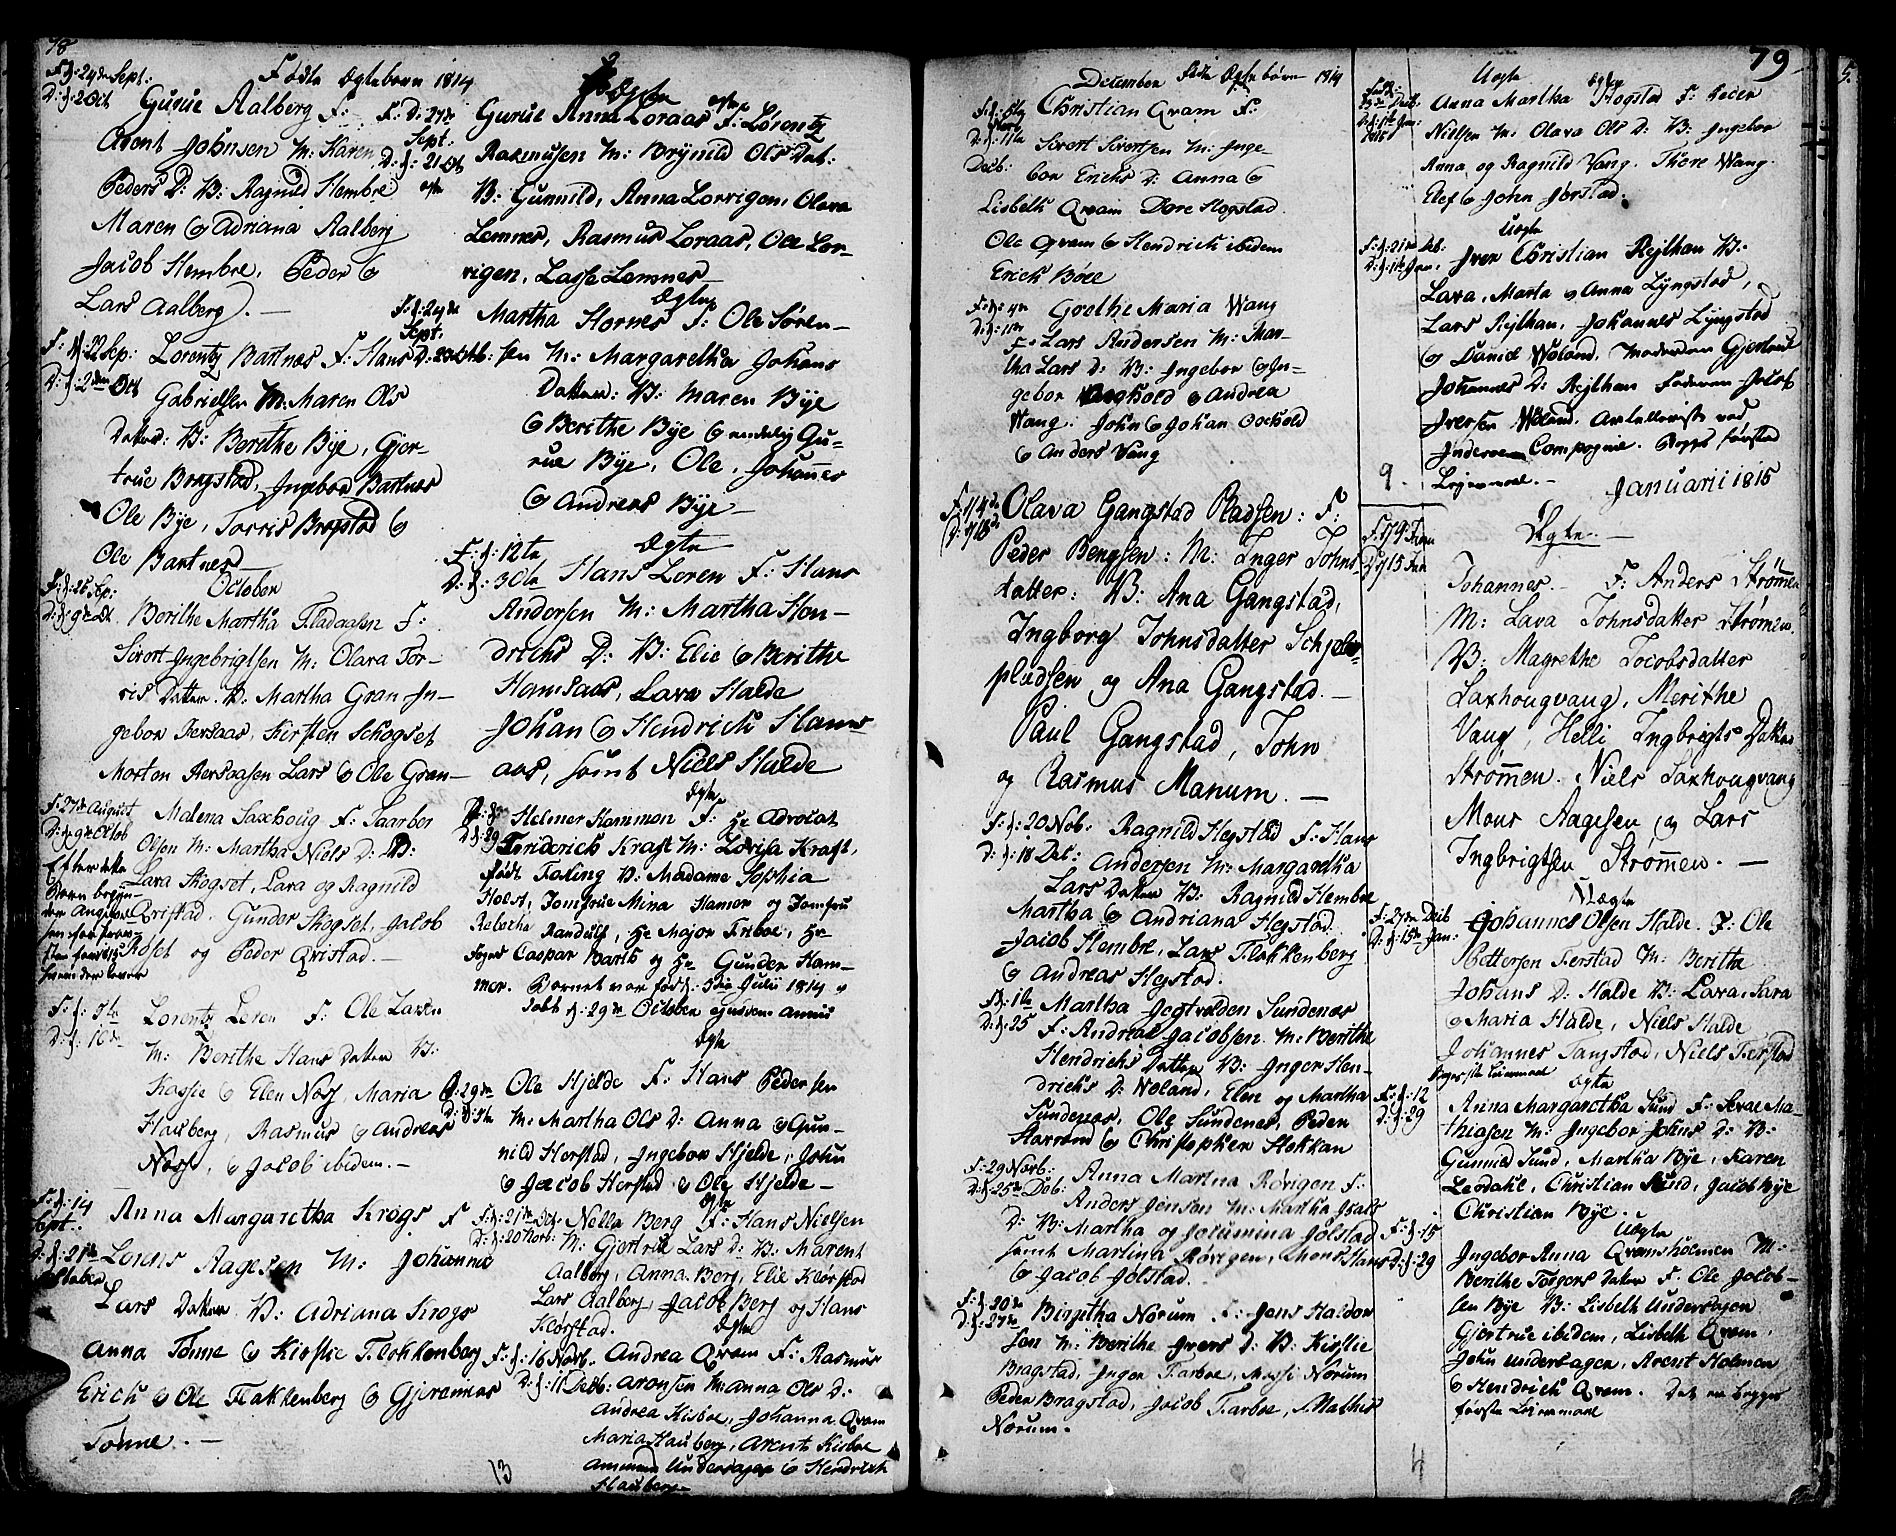 78
Fødte Ægteborn 1814
F: d: 24de Sept:
D: d: 2 Oct
Gurue Aalberg F:
Arent Johnsen M: Karen
Peders D: V: Ragnild Hembre
Maren & Adriana Aalberg
Jacob Hembre, Peder &
Lars Aalberg. —
F: d: 22 Sep:
D: d: 2den Oct
Lorentz Bartnes F: Hans
Gabrielsen M: Maren Ols
Datter: V: Berithe Bye, Gjer-
true Bragstad, Ingebor Bartnes
Ole Bye, Torris Bragstad &
Ole Bartnes
October
F: d: 25 Sep:
D: d: 9de Oct.
Berithe Martha Fladaasen F:
Sivert Ingebrigtsen M: Olava Tor-
ris Datter. V: Martha Gran In-
gebor Aersaas, Kirsten Schogset
Morten Aersaasen Lars & Ole Gran
F: 27de August
D: d: 9de Octob
Malena Saxhoug F: Saarber
Olsen M: Martha Niels D: V:
Lara Skogset, Lava og Ragnild
Qristad. Gunder Skogset, Jacob
Roset og Peder Qristad. —
Efter dette
Barn begyn-
der
F: d: 9de
D: d: 16de
Lorentz Leren F: Ole Larsen
M: Berithe Hans Datter V:
Kassie & Elen Noss, Maria
Hauberg, Rasmus & Andreas
Noss, & Jacob ibidem. —
F: d: 14
Sept:
D: d: 21de
October
Anna Margaretha Krogs F
Lorens Aagesen M: Johanna
Lars Datter V: Adriana Krogs
Anna Tønne & Kirstie Flokkenberg
Erich & Ole Flakkenberg & Gjeremias
Tønne. —
Ægte
F: D: 27de
Sept:
D: d: 21 Oct
Gurue Anna Loraas F: Lørentz
Rasmusen M: Brynild Ols Dat:
V: Gunnild, Anna Lorrigen, Olava
Lemnes, Rasmus Loraas, Ole Lor-
rigen, Lasse Lemnes
Ægte
F: d: 24de
Sept:
D: 23 Octob:
Martha Hornes F: Ole Søren-
sen M: Margaretha Johans
Datter: V: Maren Bye
& Berithe Bye & endelig Gu-
rue Bye, Ole, Johannes
& Andreas Bye —
Ægte
F: d: 12te
D: d: 30te
Hans Leren F: Hans
Andersen M: Martha Hen-
drichs D: V: Elie & Berithe
Hamsaas, Lava Halde
Johan & Hendrich Hams-
aas, samt Niels Halde
Ægte
D: d: 29
Helmer Hammon F: Hr Advocat
Friderich Kraft M: Lovisa Kraft,
født Fasting V: Madame Sophia
Holst, Jomfrue Mina Hamer og Jomfru
Rebecha Randulf, Hr Major Friboe, Hr
Caspar Barth og Hr Gunder Ham-
mer. Barnet var født d: 5te Julii 1814 &
døbt d: 29de October ejusdem annus
Ægte
F: 29de
Ole Hjelde F: Hans Pedersen
M: Martha Ols D: Anna & Gun-
nild Horstad, Ingebor Hjelde, John
& Jacob Horstad & Ole Hjelde —
Ægte
F: d: 21de Oct:
D: d: 20 Novr.
Nella Berg F: Hans Nielsen
M: Gjertrue Lars D: V: Marent
Aalberg, Anna Berg, Elie Klørstad
Lars Aalberg, Jacob Berg og Hans
Klørstad.
Ægte
F: d: 16 Novb.
D: d: 11 Decb:
Andrea Qvam F: Rasmus
Aronsen M: Anna Ols D:
Andrea Kisboe, Johanna Qvam
Maria Hauberg, Arent Kisboe
Ammund Undersager & Hendrich
Hauberg
13
December Fødte Ægte børn 1814
D: d: 11te
Decb:
Christian Qvam F:
Sivert Sivertsen M: Inge-
bor Erichs D: Anna &
Lisbeth Qvam Dore Hogstad.
Ole Qvam & Hendrich ibidem
Erich Böle
F: d: 4de
D: d: 11te
Goethe Maria Wang
F: Lars Andersen M: Mar-
tha Lars D: V: Ingebor & In-
gebor & Andrea
Wang. John & Johan
& Anders Vang
F: d/4de
D: d/18de
Olava Gangstad Pladsen: F:
Peder Bengtsen: M: Inger Johns-
datter: V: Ana Gangstad,
Ingborg Johnsdatter Schjel-
pladsen og Ana Gangstad. —
Paul Gangstad, John
og Rasmus Manum. —
F: d: 20 Nob:
D: d: 18 Dec:
Ragnild Hegstad F: Hans
Andersen M: Margaretha
Lars Datter V: Ragnild Hembre
Martha & Andriana Hegstad
Jacob Hembre, Lars Flokkenberg
& Andreas Hegstad.
F: d: 1te
D: d: 25
Martha Jegtvolden Sundenæs
F: Andreas Jacobsen M: Berithe
Hendrichs Datter V: Inger Hen-
drichs D: Woland, Elen og Martha
Sundenes, Ole Sundenes, Peder
Staxrond & Christopher Stokkan
F: 29 Novb:
D: d: 25de Deb:
Anna Martna Rørigen F:
Anders Jensen M: Martha Isacs
D: V: Martha og Jolumina Jolstad
samt Martina Rørigen, Mons Hans
& Jacob Jolstad.
F: d: 20de
D: d: 27de
Birgitha Norum F: Jens Haldor
sen M: Berithe Ivers D: V: Kirstie
Bragstad, Inger Farboe, Massi Norum
Peder Bragstad, Jacob Farboe, Mathis
Norum.
79
Uægte
Anna Martha Hogstad F: Peder
Nielsen M: Olava Ols D: V: Ingebor
Anna og Ragnild Vang. There Wang.
Elef & John Jørstad.
Uægte
F: d: 21de Deb:
D: d: 1te Jan.
Iver Christian Rejlhan V:
Lava, Marta & Anna Lyngstad,
Lars Rejlhan, Johannes Lyngstad
& Daniel Woland. Moderen Gjertrue
Johannes D: Rejlhan Faderen Jacob
Iversen Woland. Artellerist ved
Inderøens Compagnie. Begges første
Lejermaal. —
9.
Januarii 1815
Ægte. —
F: d/9 Jan
D: d/15 Jan
Johannes. — F: Anders Strömen
M: Lava Johnsdatter Strömen.
V: Magrethe Jocobsdatter
Saxhougvang, Merithe
Vang, Helli Ingbrigts Datter
Strömen. Niels Saxhougvang
Mons Aagesen, og Lars
Ingbrigtsen Strömen. —
Uægte
F: 27de Decb
D: d: 15de Jan:
Johannes Olsen Halde. F: Ole
Pettersen Fierstad M: Beritha
Johans D: Halde V: Lava, Sara
& Maria Halde, Niels Halde
Johannes Tangstad, Niels Fierstad
Begges 1ste Leiermaal
Ægte
F: d: 12
D: d: 29
Anna Margaretha Sund F: Sevae Ma-
thiasen M: Ingebor Johns D: V:
Gunnild Sund, Martha Bye, Karen
Leedahl, Christian Sund, Jacob Bye
Christian Bye.
Uægte
F: d: 15
D: d: 29
Ingebor Anna Qvamsholmen M:
Benthe Torgers Datter F: Ole Jacob-
sen Bye V: Lisbeth Undersagen
Gjertrue ibidem, Lisbeth Qvam,
John Undersagen, Arent Holmen
& Hendrich Qvam. Det er begges
første Leiermaal
4